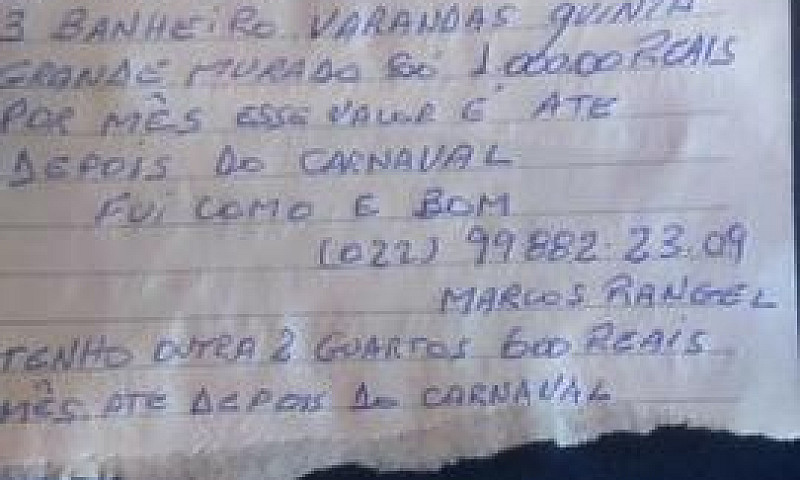 3 BANHEIRO VARANDAS QUINTA
GRANDE MURADO SÓ 1.000.00 REAIS
POR MÊS ESSE VALOR É ATE
DEPOIS DO CARNAVAL
FUI COMO E BOM
(022) 99882.23.09
MARCOS RANGEL
TENHO OUTRA 2 GUARTOS 600 REAIS
MÊS ATE DEPOIS DO CARNAVAL